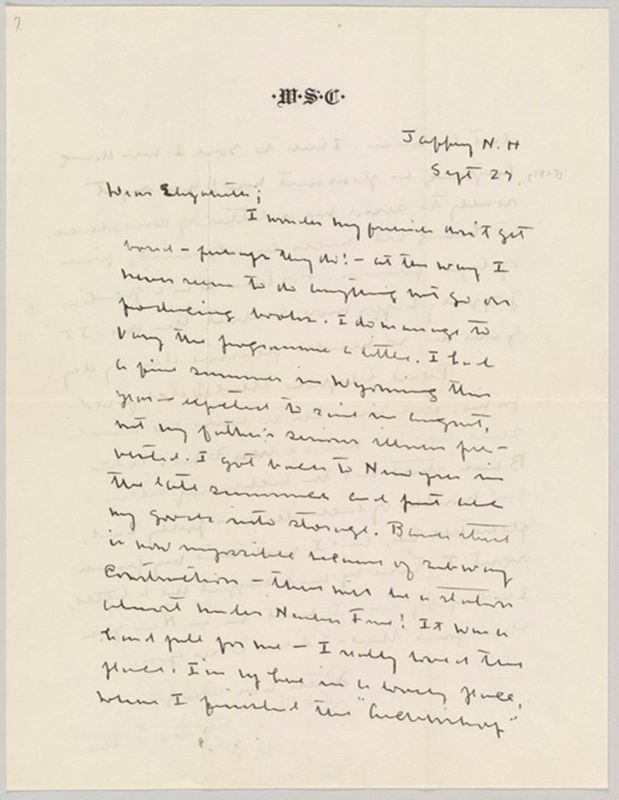 7.
·W·S·C·
Jaffrey N. H
Sept 27. [1927]
Dear Elizabeth;
I wonder my friends don't get
bored - perhaps they do! - at the way I
never seem to do anything but go on
producing books. I do manage to
vary the programme a little. I had
a fine summer in Wyoming this
year - expected to sail in August,
but my father's serious illness pre-
vented. I got back to New York in
the late summer and put all
my goods into storage. Bank street
is now impossible because of subway
construction - there will be a station
almost under Number Five! It was a
hard pull for me - I really loved that
place. I'm up here in a lovely place,
where I finished the "Archbishop"